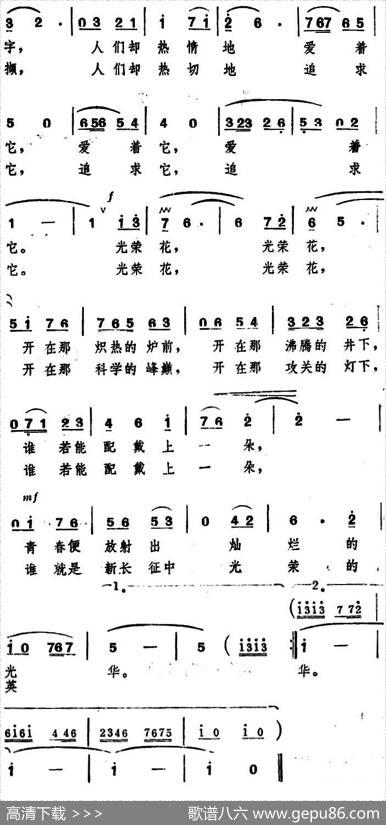 3 2 · 0 3 2 1 i 7 i 2 6 · 7 6 7 6 5
字， 人们却热情地 爱着
撷， 人们却热切地 追求
5 0 6 5 6 5 4 4 0 3 2 3 2 6 5 3 0 2
它，爱着它，爱着
它，追求它，追求
f
1 — 1 i 3 7 6 · 6 7 2 6 5 ·
它。 光荣花， 光荣花，
它。 光荣花， 光荣花，
5 i 7 6 7 6 5 6 3 0 6 5 4 3 2 3 2 6
开在那 炽热的炉前，开在那 沸腾的井下，
开在那 科学的峰巅，开在那 攻关的灯下，
0 7 1 2 3 4 6 i 7 6 2 2 —
谁若能配戴上一朵，
谁若能配戴上一朵，
mf
0 i 7 6 5 6 5 3 0 4 2 6 · 2
青春便 放射出 灿烂的
谁就是 新长征中 光荣的
1. 2.
i 3 i 3 7 7 2
i 0 7 6 7 5 — 5 ( i 3 i 3 :‖ i —
光 华。 华。
英
6 i 6 i 4 4 6 2 3 4 6 7 6 7 5 i 0 i 0 )
i — i — i 0
高清下载 >>> 歌谱八六 www.gepu86.com